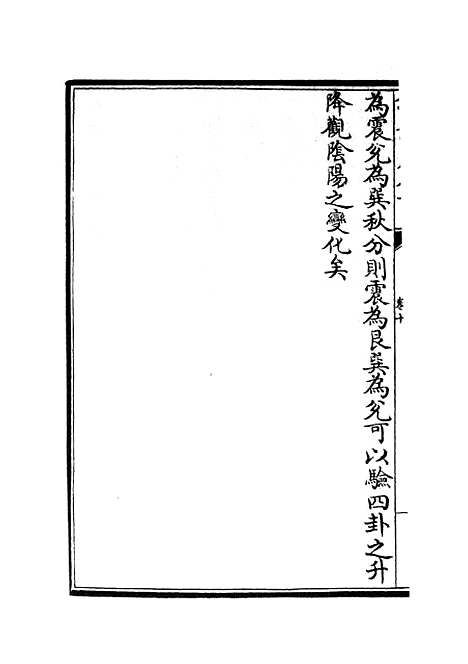 為震兊為巽秋分則震為艮巽為兊可以驗四卦之升
降觀陰陽之變化矣
卷十